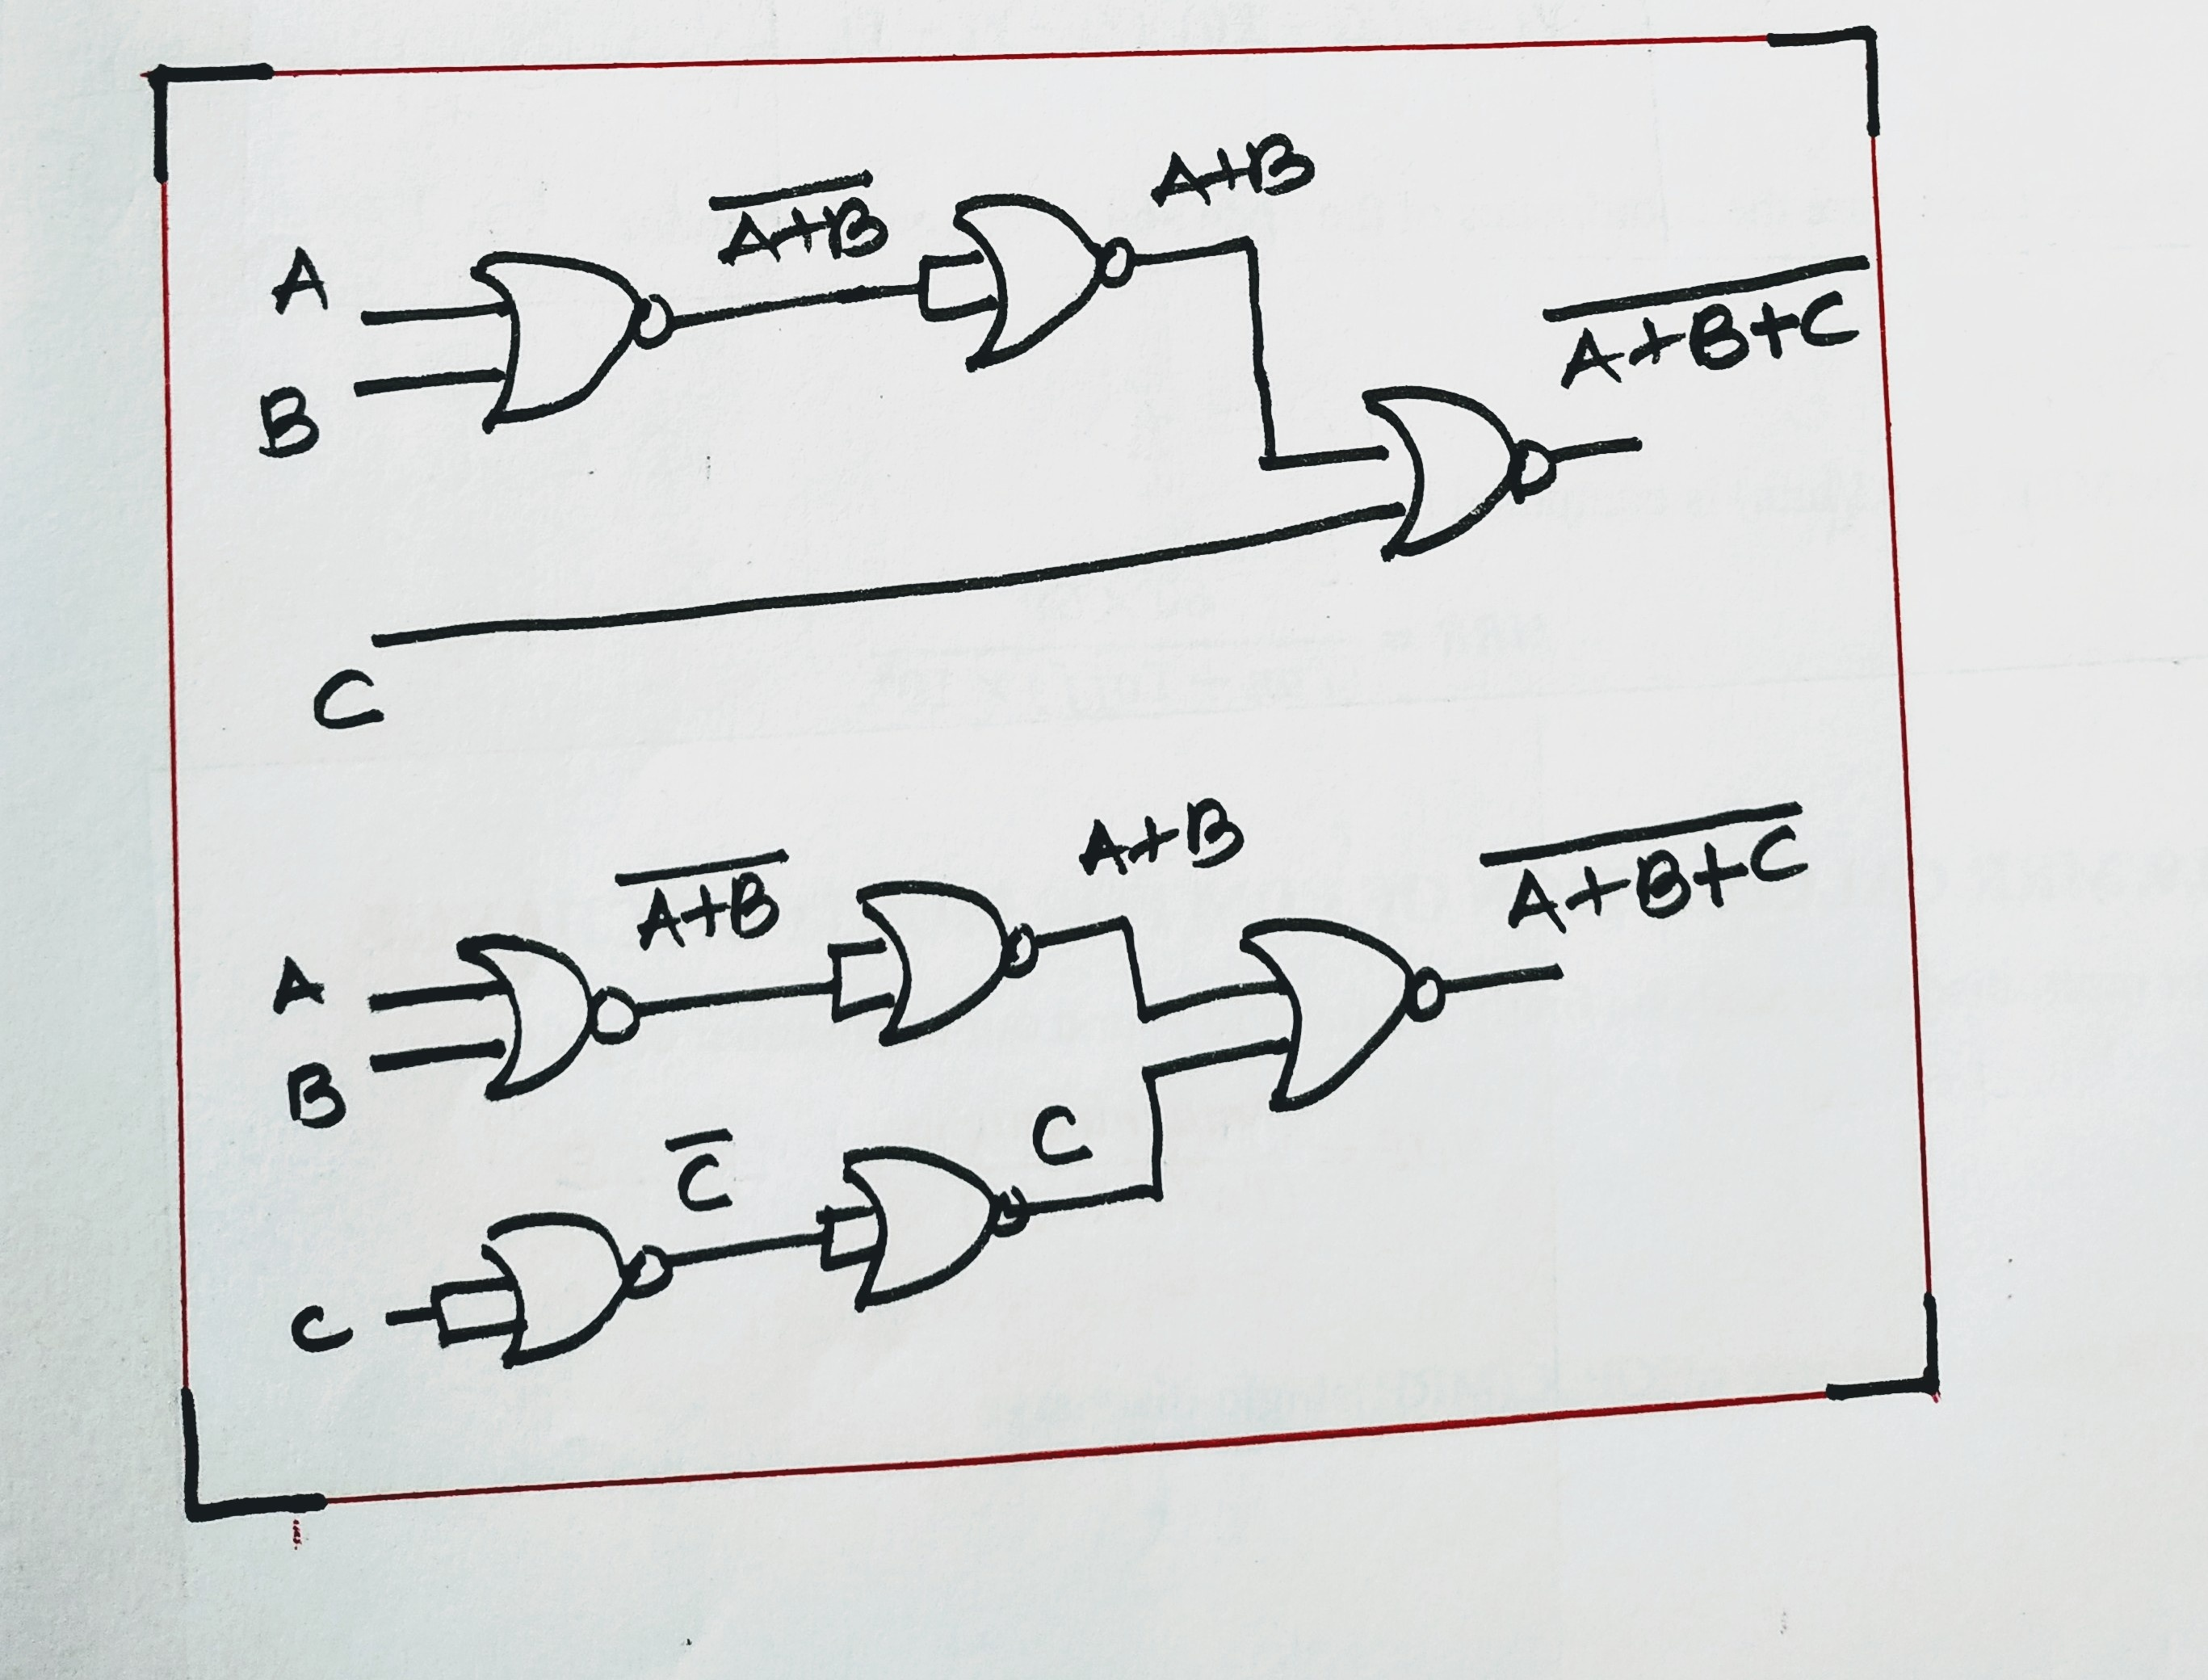 A+B
A
$\overline{A+B}$
B
$\overline{A+B+C}$
C
A+B
$\overline{A+B+C}$
$\overline{A+B}$
A
B
$\overline{C}$
C
C